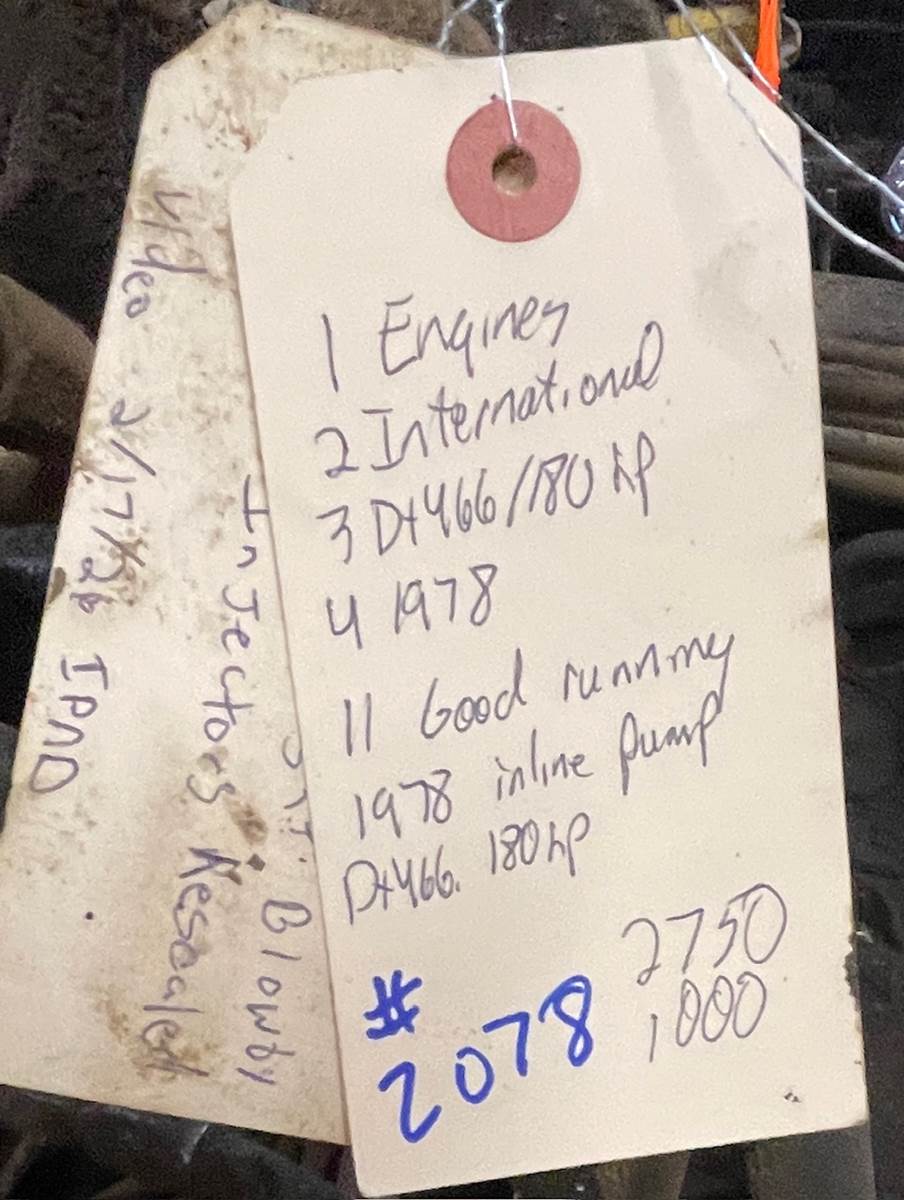 1 Engines
2 International
3 Dt466/180 hp
4 1978
11 Good running
1978 inline pump
Dt466. 180hp
2750
1000
#
2078
Video 2/17/26
Injectors Resealed
Blowby